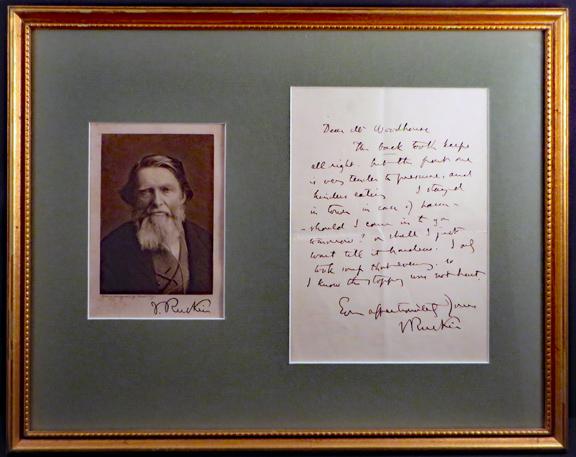 J. Ruskin
Dear Mr Woodhouse
The back tooth keeps
all right. but the front one
is very tender to pressure, and
hinders eating I stayed
in town in case of harm -
- should I come in to you
tomorrow? or shall I just
wait till it hardens. I only
took soup that evening. so
I know the stopping was not hurt.
Ever affectionately Yours
J Ruskin